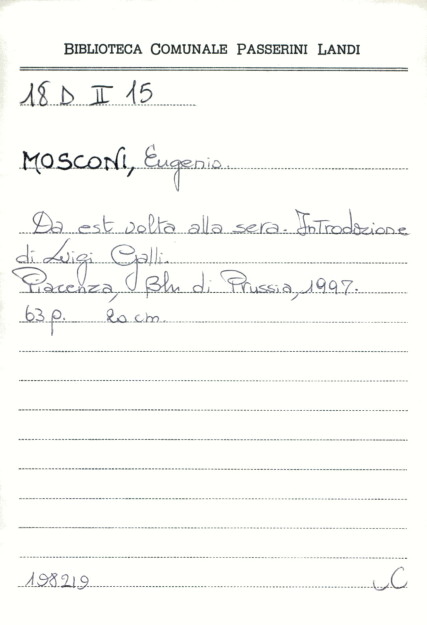 BIBLIOTECA COMUNALE PASSERINI LANDI
18 D II 15
MOSCONI, Eugenio.
Da est volta alla sera. Introduzione
di Luigi Galli.
Piacenza, Blu di Prussia, 1997.
63 p. 20 cm.
198219